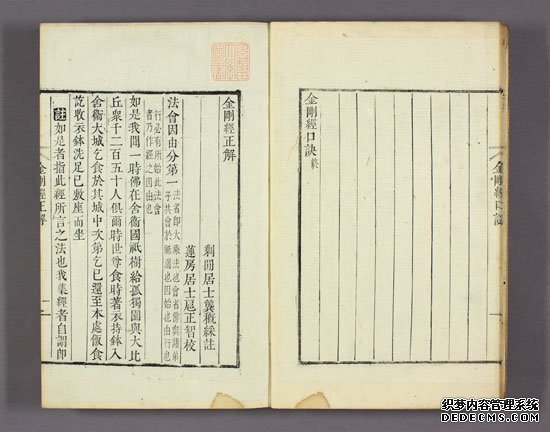 金剛經口訣
金剛經口訣終
金剛經正解
剩閒居士龔概綵註
蓮房居士扈正智校
法會因由分第一
法者即大乘法也會者佛與諸弟
子共會於祇園也因始也由行也
行必有所始此法會
者乃作經之因由也
如是我聞一時佛在舍衛國祇樹給孤獨園與大比
丘眾千二百五十人俱爾時世尊食時著衣持鉢入
舍衛大城乞食於其城中次第乞已還至本處飯食
訖收衣鉢洗足已敷座而坐
註如是者指此經所言之法也我集經者自謂即
金剛經正解 一
织梦内容管理系统
DEDECMS.COM